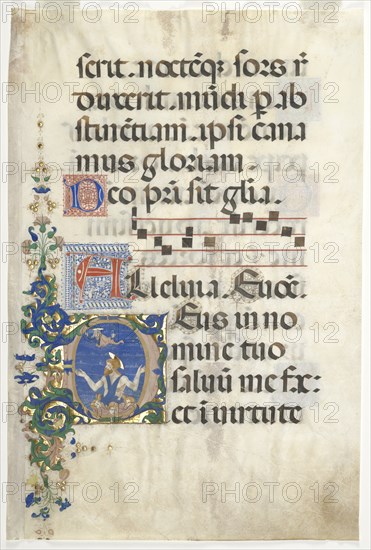 serit. noctẽqꝫ sors ñ
duxerit. mũdi ꝑ ab
stinẽtiam. ipsi cana
mus gloriam.
Deo pr̃i sit gl̃ia.
Alleluia. Euoẽ.
Deus in no
mine tuo
saluũ me fac:
et ĩ uirtute
PHOTO12